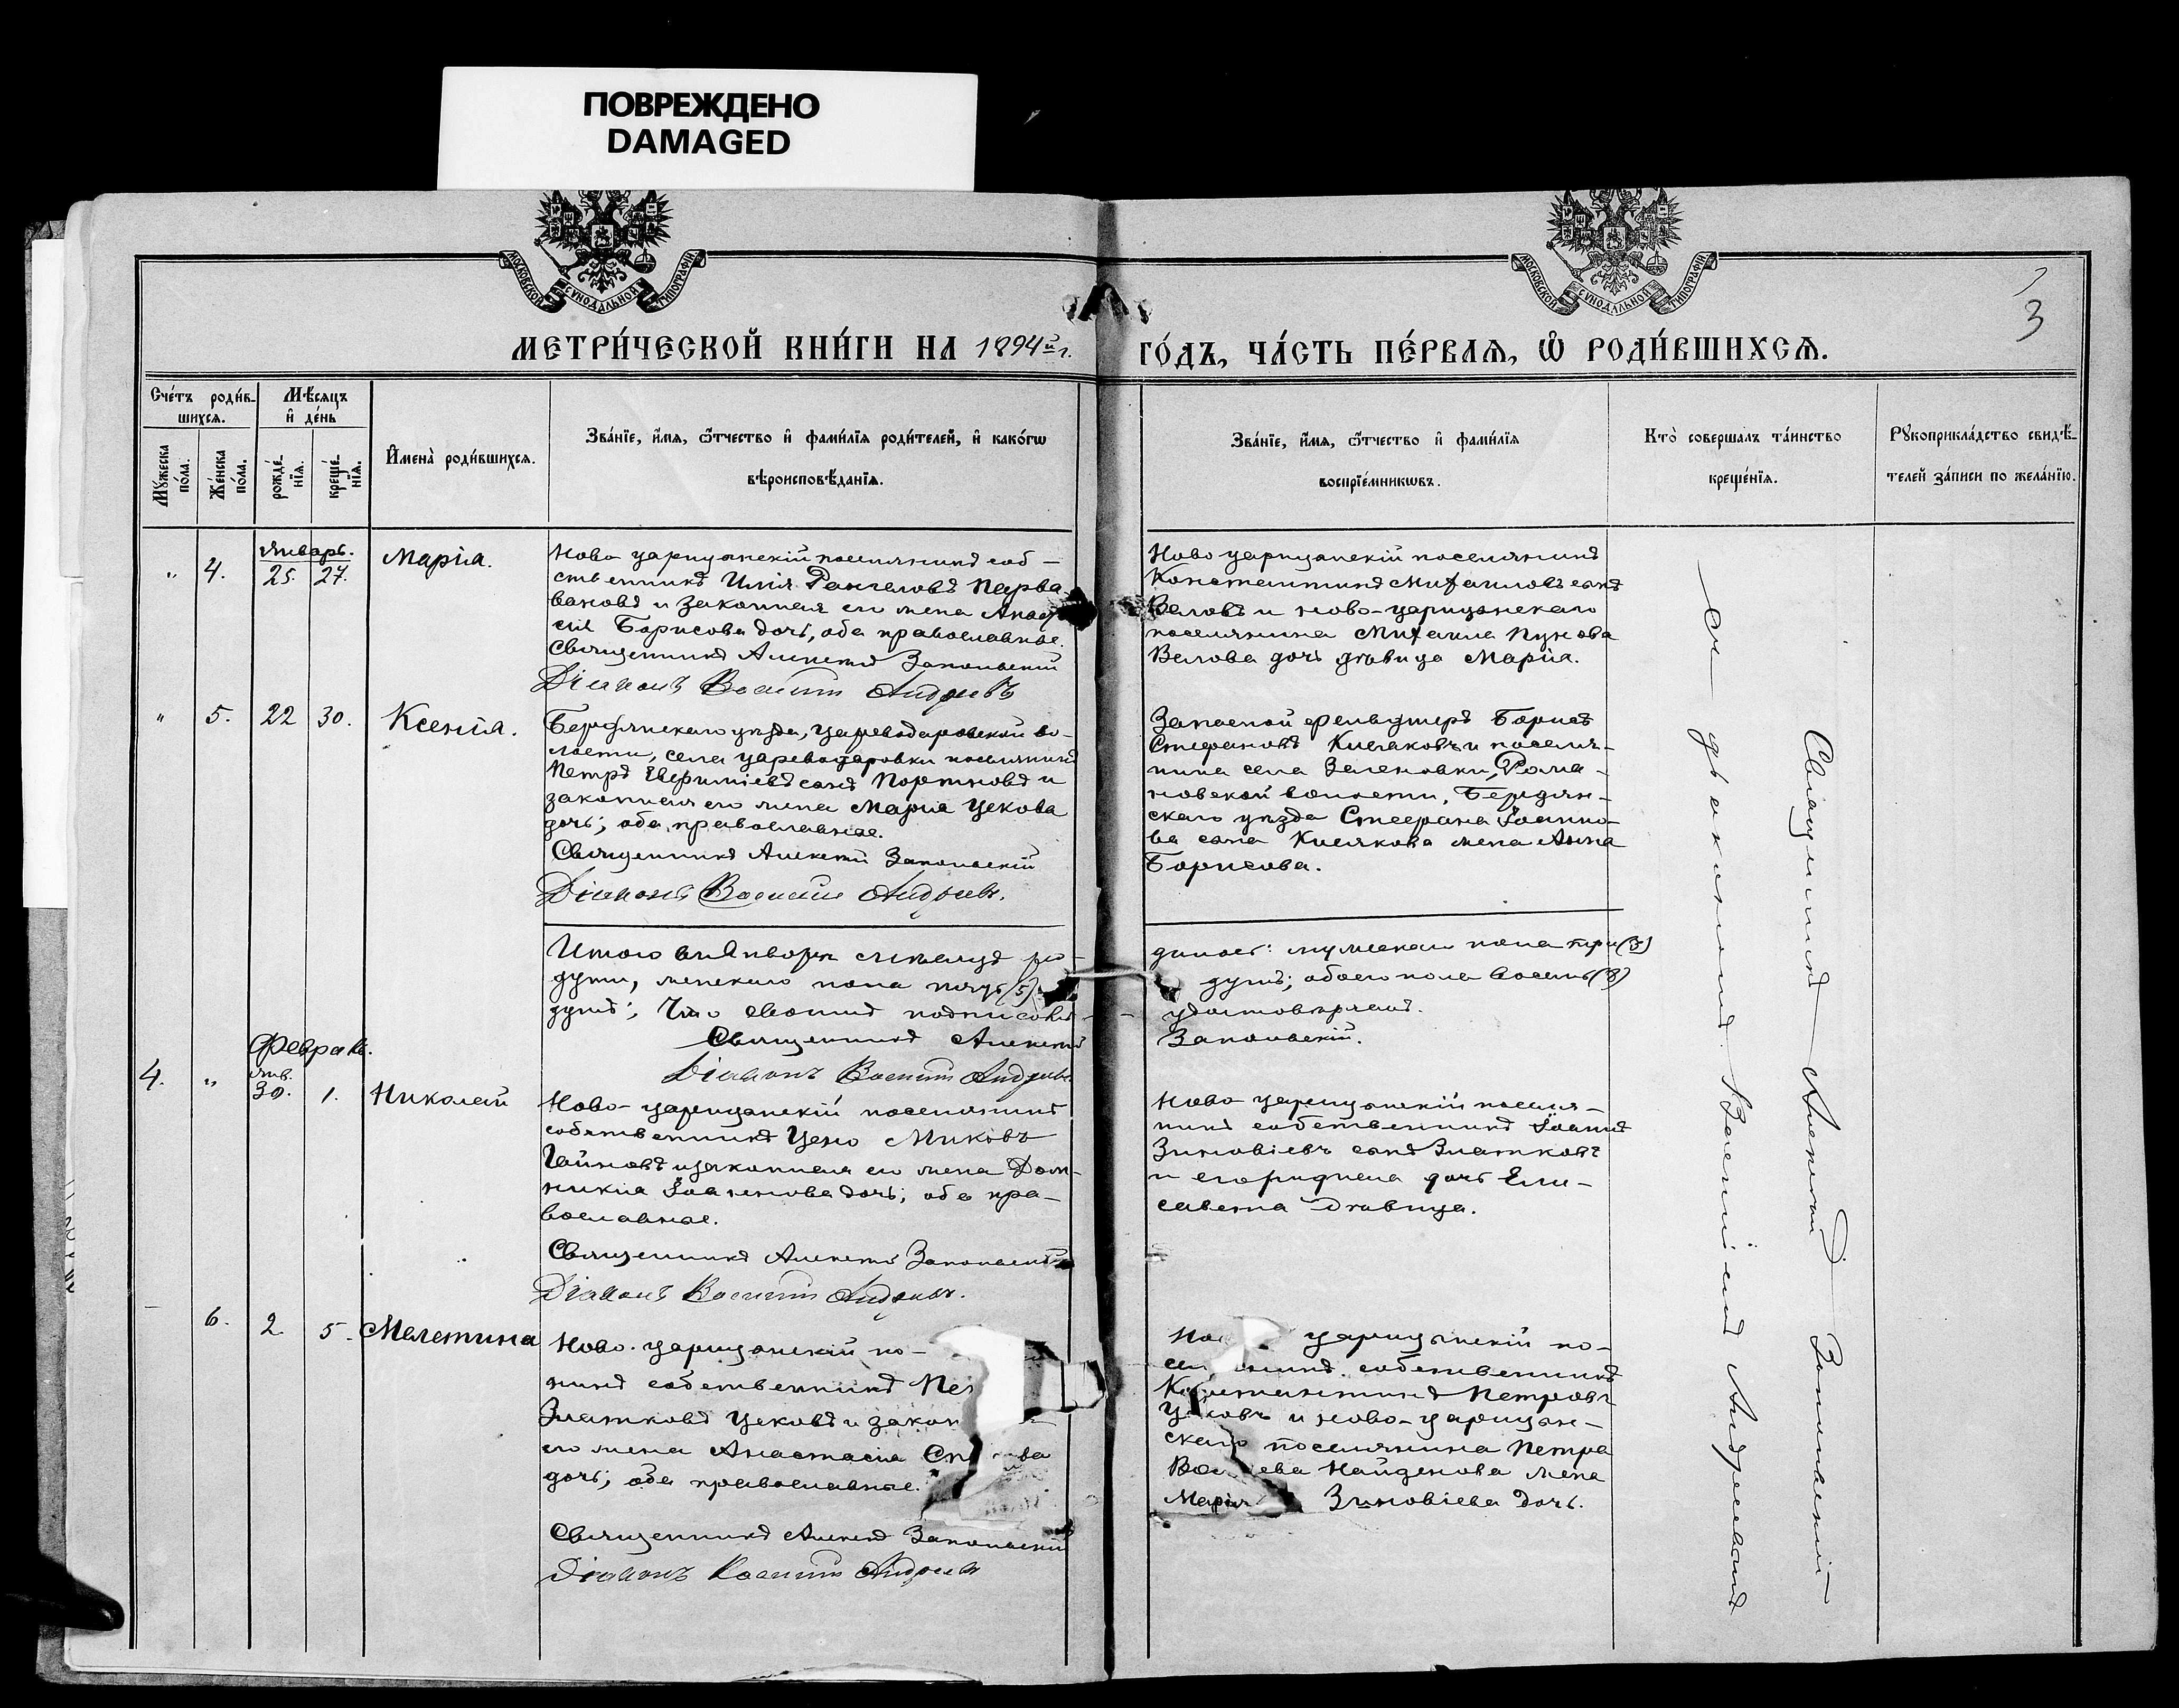 ПОВРЕЖДЕНО
DAMAGED
МОСКОВСКОЙ СѴНОДАЛЬНОЙ ТИПОГРАФІИ
МОСКОВСКОЙ СѴНОДАЛЬНОЙ ТИПОГРАФІИ
3
МЕТРИ́ЧЕСКОЙ КНИ́ГИ НА 1894й г. ГО́ДЪ, ЧА́СТЬ ПЕ́РВАЯ, Ѡ҆ РОДИ́ВШИХСЯ.
Сче́тъ роди́в-
шихся.
Мѣ́сяцъ
и҆ де́нь
Мꙋ́жеска по́ла.
Же́нска по́ла.
рожде́-нїя.
креще́-нїя.
И҆мена̀ роди́вшихся.
Зва́нїе, и҆́мя, ѻ҆́тчество и҆ фами́лїя роди́телей, и҆ како́гѡ
вѣроисповѣ́данїя.
Зва́нїе, и҆́мя, ѻ҆́тчество и҆ фами́лїя
воспрїе́мникѡвъ.
Кто̀ соверша́лъ та́инство
креще́нїя.
Рꙋкоприкла́дство свидѣ́-
телей за́писи по жела́нїю.
Январь.
" 4. 25. 27. Марія.
Ново царицынскій поселянинъ соб-
ственникъ Илія
и законная его жена
Борисова дочь, оба православные.
Священникъ Алексій Запольскій
Діаконъ Василій Андреевъ
Ново царицынскій поселянинъ
Константинъ Михаиловъ сынъ
Веловъ и ново-царицынскаго
поселянина Михаила Пунова
Велова дочь дѣвица Марія.
" 5. 22 30. Ксенія.
Бердянскаго уѣзда, Цареводаровской во-
лости, села Цареводаровки поселянинъ
Петръ Евфиміевъ сынъ Портновъ и
законная его жена Марія Цекова
дочь; оба православные.
Священникъ Алексій Запольскій
Діаконъ Василій Андреевъ.
Запасной фельдшеръ Борисъ
Стефановъ Кисляковъ и поселя-
нина села Зеленовки, Рома-
новской волости, Бердян-
скаго уѣзда Стефана Іоанно-
ва сына Кислякова жена Анна
Борисова.
Итого въ Январѣ мѣсяцѣ ро-
дилось: мужескаго пола три (3)
души, женскаго пола пять (5)
душъ; обоего пола восемь (8)
душъ; Что своимъ подписомъ
удостовѣряемъ.
Священникъ Алексій
Запольскій.
Діаконъ Василій Андреевъ
Февраль.
Янв.
4. " 30. 1. Николай
Ново-царицынскій поселянинъ
собственникъ Цено Миковъ
Гайновъ и законная его жена Дом-
никія Іоаннова дочь; оба пра-
вославные.
Священникъ Алексій Запольскій
Діаконъ Василій Андреевъ.
Ново царицынскій поселя-
нинъ собственникъ Іоаннъ
Зиновіевъ сынъ Златковъ
и его родная дочь Ели-
савета дѣвица.
- 6. 2 5. Мелетина
Ново-царицынскій по-
нинъ собственникъ
Златковъ Цековъ и закон
его жена Анастасія
дочь; оба православные.
Священникъ Алексій Запольскій
Діаконъ Василій Андреевъ
царицынскій по-
собственникъ
Константинъ Петровъ
Цековъ и ново-царицын-
скаго поселянина Петра
Найденова жена
Марія Зиновіева дочь.
Священникъ Алексій Запольскій
съ діакономъ Василіемъ Андреевымъ